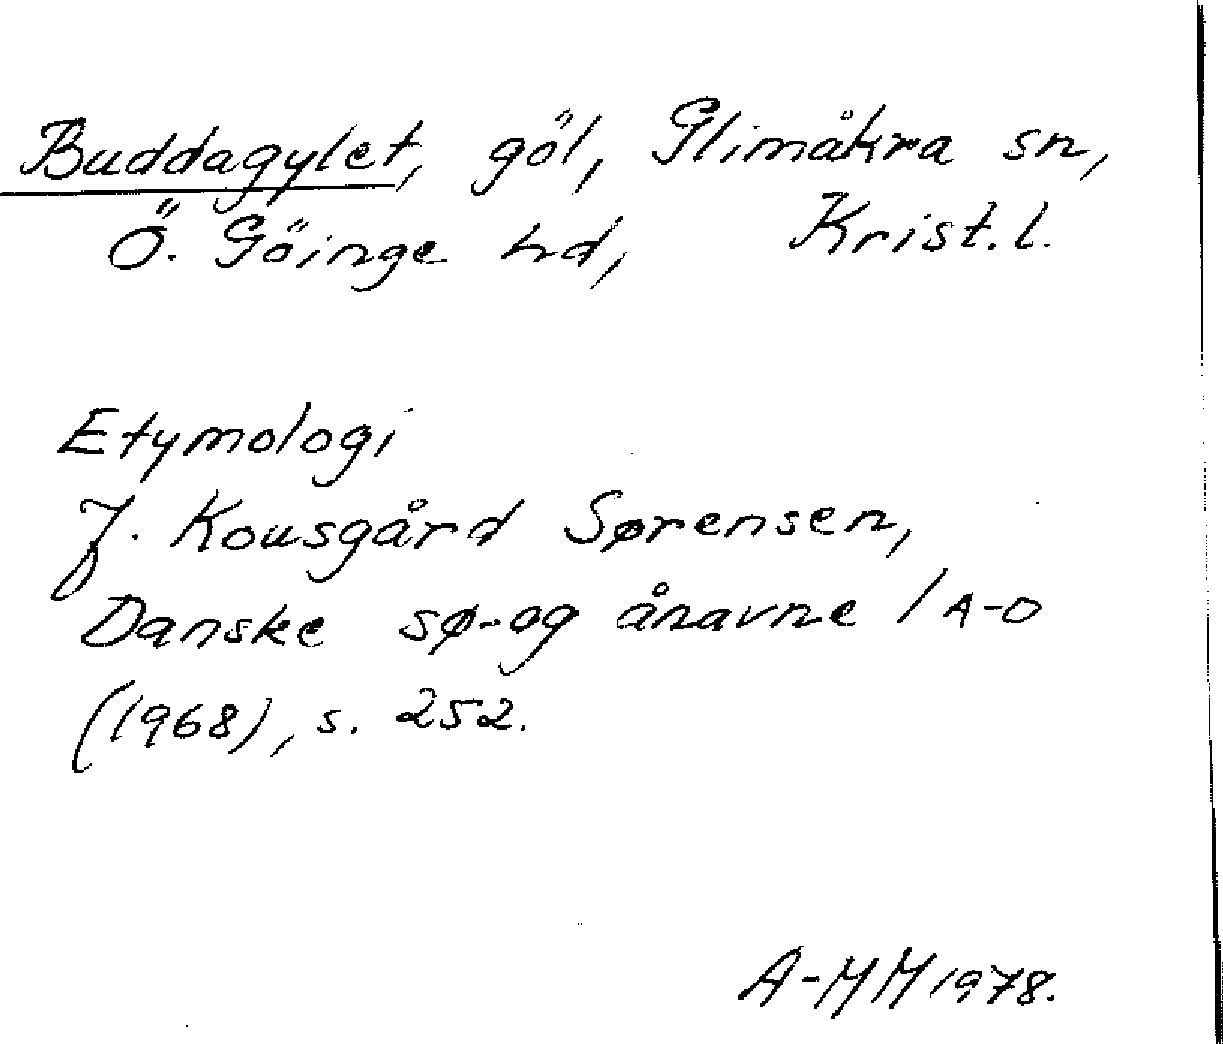 Buddagylet, göl, Glimåkra sn,
Ö. Göinge hd, Krist. l.
Etymologi
J. Kousgård Sørensen,
Danske sø- og ånavne / A-O
(1968), s. 252.
A-MM 1978.